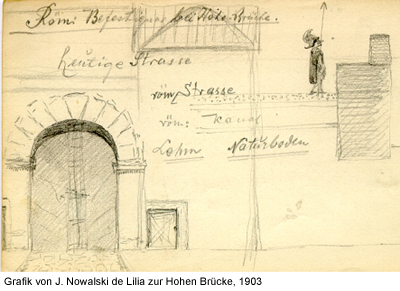 Röm: Befestigung bei Hohe-Brücke.
heutige Strasse
röm: Strasse
röm: Kanal
Lehm Naturboden
Grafik von J. Nowalski de Lilia zur Hohen Brücke, 1903